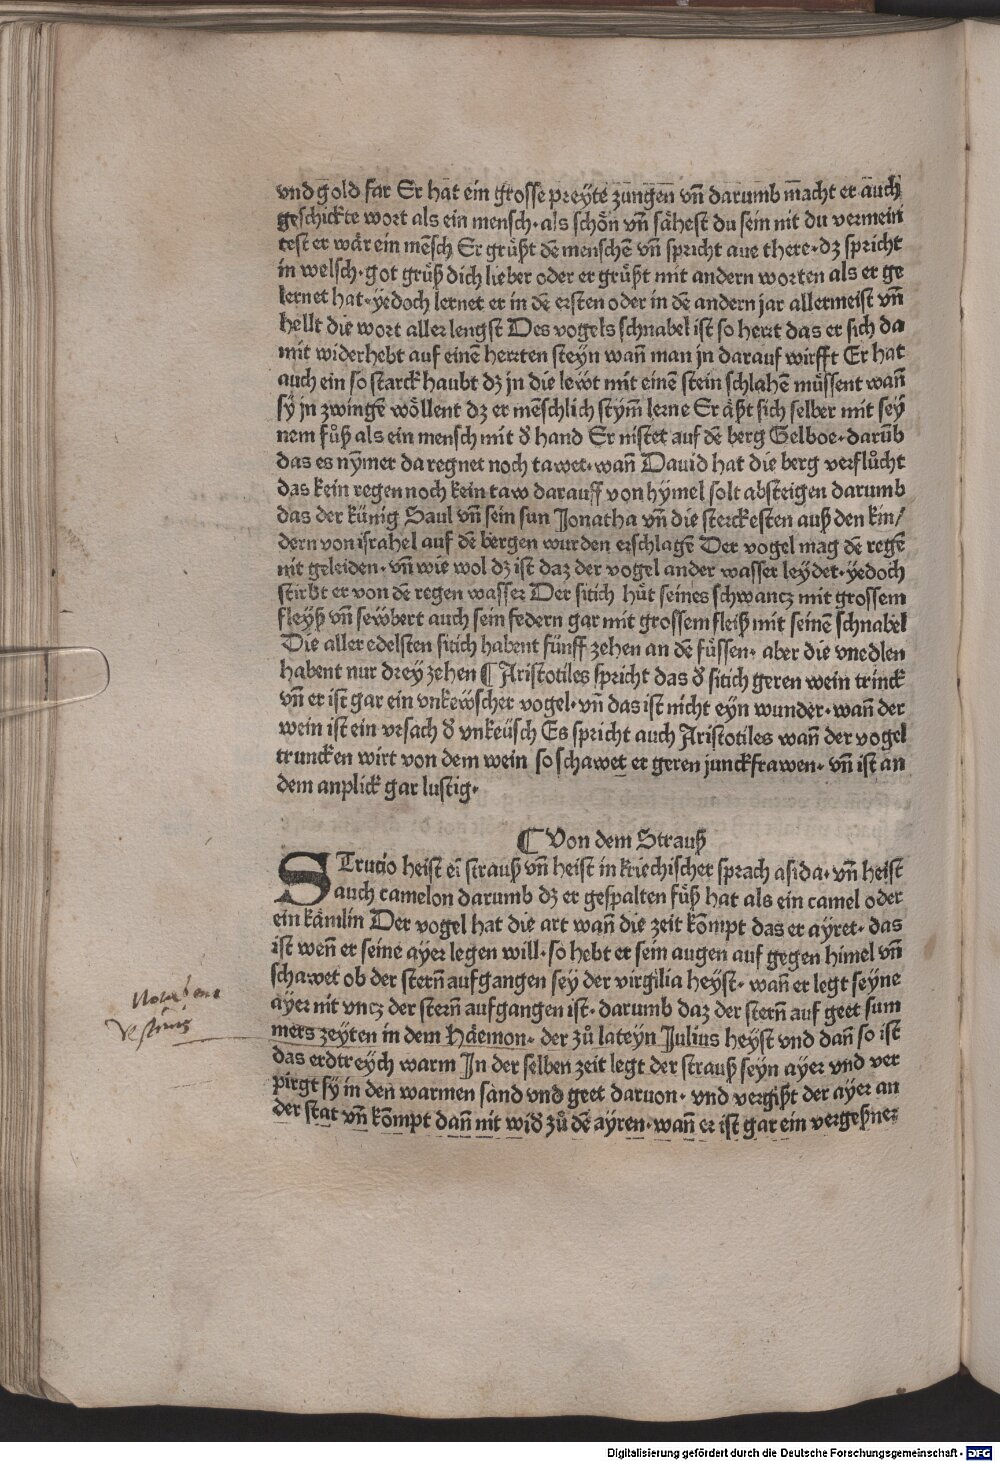 vnd gold far Er hat ein grosse preÿte zungen vñ darumb macht er auch
geschickte wort als ein mensch· als schoͤn vñ saͤhest du sein nit du vermein
test er waͤr ein mẽsch Er gruͤßt dẽ menschẽ vñ spricht aue there· dz spricht
in welsch· got gruͤß dich lieber oder er gruͤßt mit andern worten als er ge
lernet hat· ÿedoch lernet er in dẽ ersten oder in dẽ andern jar allermeist vñ
hellt die wort aller lengst Des vogels schnabel ist so hert das er sich da
mit widerhebt auf einẽ herten steyn wañ man jn darauf wirfft Er hat
auch ein so starck haubt dz jn die leẅt mit einẽ stein schlahẽ muͤssent wañ
sÿ jn zwingẽ woͤllent dz er mẽschlich stym̃ lerne Er aͤßt sich selber mit seÿ
nem fuͦß als ein mensch mit d̕ hand Er nistet auf dẽ berg Gelboe· darũb
das es nÿmer da regnet noch tawet· wañ Dauid hat die berg verfluͦcht
das kein regen noch kein taw darauff von hÿmel solt absteigen darumb
das der künig Saul vñ sein sun Jonatha vñ die sterckesten auß den kin/
dern von israhel auf dẽ bergen wurden erschlagẽ Der vogel mag dẽ regẽ
nit geleiden· vñ wie wol dz ist daz der vogel ander wasser leydet· ÿedoch
stirbt er von dẽ regen wasser Der sitich huͤt seines schwancz mit grossem
fleyß vñ seẅbert auch sein federn gar mit grossem fleiß mit seinẽ schnabel
Die aller edelsten sitich habent fünff zehen an dẽ fuͤssen· aber die vnedlen
habent nur drey zehen ¶ Aristotiles spricht das d̕ sitich geren wein trinck
vñ er ist gar ein vnkeẅscher vogel· vñ das ist nicht eyn wunder· wañ der
wein ist ein vrsach d̕ vnkeüsch Es spricht auch Aristotiles wañ der vogel
truncken wirt von dem wein so schawet er geren junckfrawen· vñ ist an
dem anplick gar lustig·
¶ Von dem Strauß
STrucio heist eĩ strauß vñ heist in kriechischer sprach asida· vñ heist
auch camelon darumb dz er gespalten fuͤß hat als ein camel oder
ein kaͤmlin Der vogel hat die art wañ die zeit kõmpt das er aÿret· das
ist weñ er seine ayer legen will· so hebt er sein augen auf gegen himel vñ
schawet ob der sterñ aufgangen sey der virgilia heyst· wañ er legt seyne
aÿer nit vncz der sterñ aufgangen ist· darumb daz der sterñ auf geet sum
mers zeyten in dem Haͤemon· der zuͦ lateyn Julius heyst vnd dañ so ist
das erdtreych warm In der selben zeit legt der strauß seyn ayer vnd ver
pirgt sÿ in den warmen sand vnd geet daruon· vnd vergißt der ayer an
der stat vñ kõmpt dañ nit wid̕ zuͦ dẽ aÿren· wañ er ist gar ein vergeßner
Digitalisierung gefördert durch die Deutsche Forschungsgemeinschaft - DFG